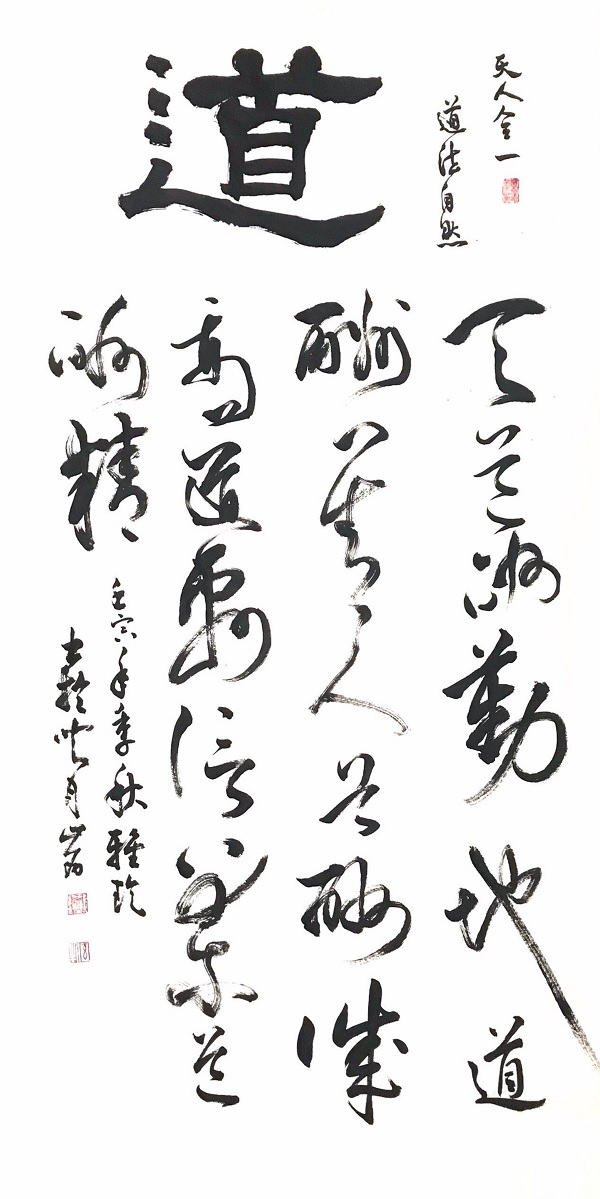 天人合一
道法自然
道
天道酬勤地道
酬善人道酬诚
商道酬信業道
酬精
壬寅年季秋